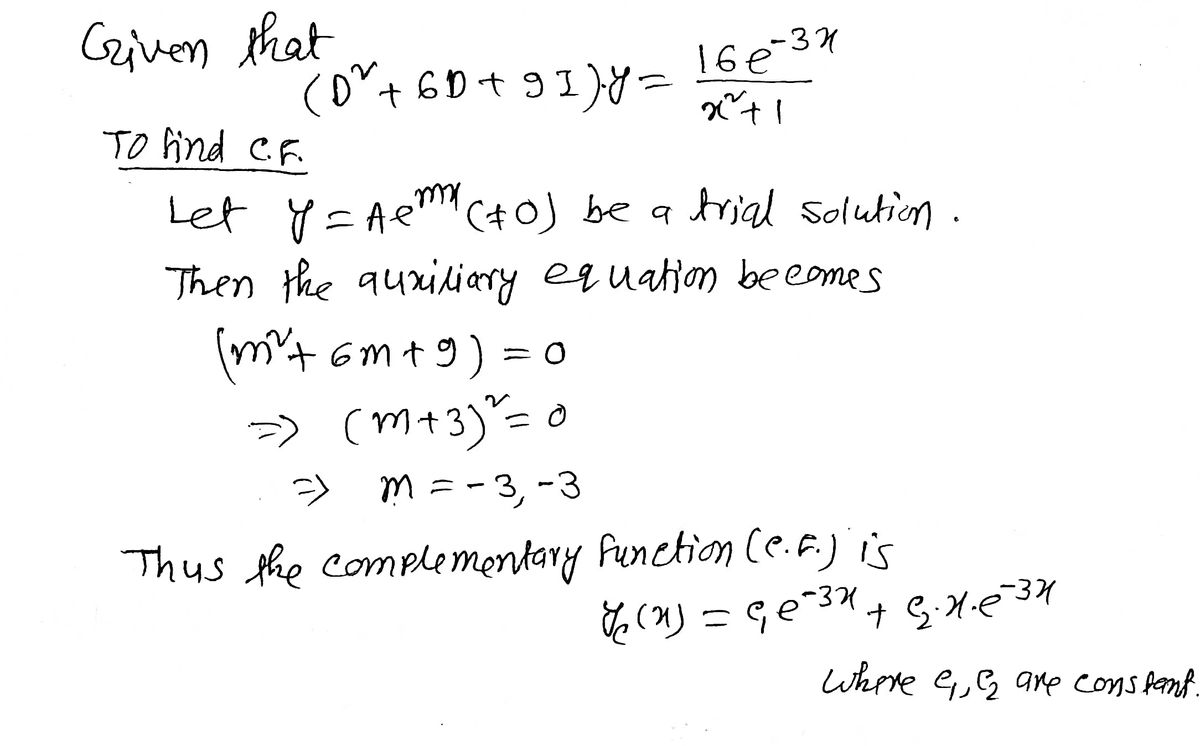 Given that
(D² + 6D + 9I)·y = 16e^{-3x} / (x²+1)
To find C.F.
Let y = Ae^{mx} (≠0) be a trial solution.
Then the auxiliary equation becomes
(m² + 6m + 9) = 0
=> (m+3)² = 0
=> m = -3, -3
Thus the complementary function (C.F.) is
y_c(x) = c₁e^{-3x} + c₂·x·e^{-3x}
where c₁, c₂ are constant.